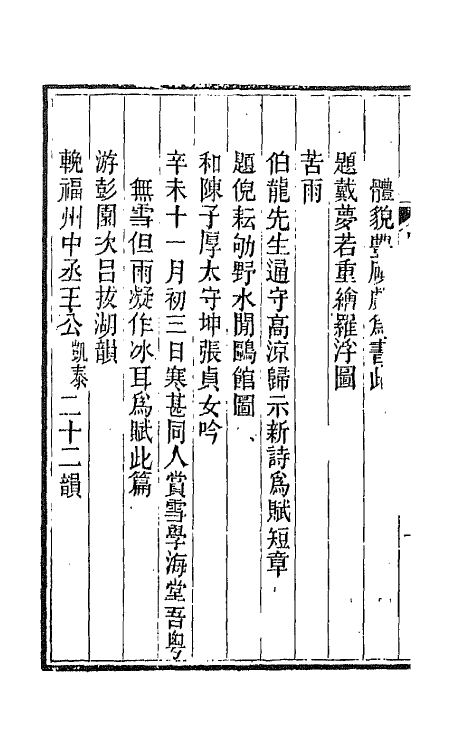 體貌豐戲為書此
題戴夢若重繪羅浮圖
苦雨
伯龍先生逼守高涼歸示新詩為賦短章
題倪耘劬野水閒鷗館圖
和陳子厚太守坤張貞女吟
辛未十一月初三日寒甚同人賞雪學海堂吾粵
無雪但雨凝作冰耳為賦此篇
游彭園次呂拔湖韻
輓福州中丞王公凱泰二十二韻